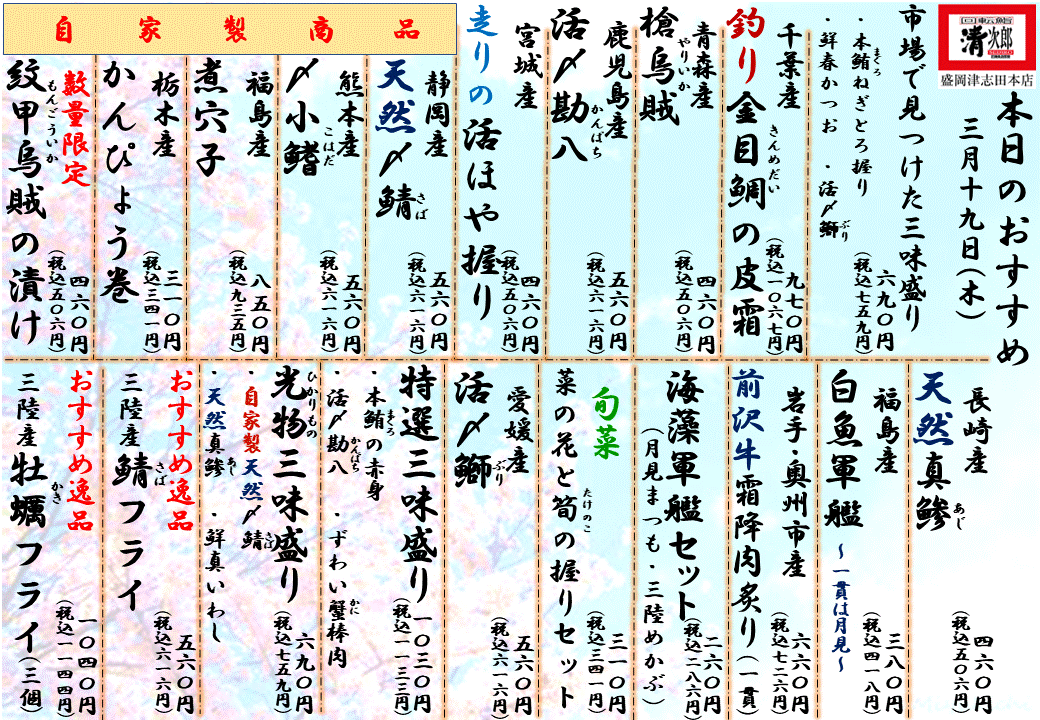 回転鮨
清次郎
盛岡津志田本店
本日のおすすめ
三月十九日(木)
市場で見つけた三味盛り
・本鮪ねぎとろ握り
まぐろ
・鮮春かつお ・活〆鰤
ぶり
六九〇円
(税込七五九円)
千葉産
釣り金目鯛の皮霜
きんめだい
九七〇円
(税込一〇六七円)
青森産
槍烏賊
やりいか
四六〇円
(税込五〇六円)
鹿児島産
活〆勘八
かんぱち
五六〇円
(税込六一六円)
宮城産
走りの活ほや握り
四六〇円
(税込五〇六円)
自家製商品
静岡産
天然〆鯖
さば
五六〇円
(税込六一六円)
熊本産
〆小鰭
こはだ
五六〇円
(税込六一六円)
福島産
煮穴子
八五〇円
(税込九三五円)
栃木産
かんぴょう巻
三一〇円
(税込三四一円)
数量限定
紋甲烏賊の漬け
もんごういか
四六〇円
(税込五〇六円)
長崎産
天然真鯵
あじ
四六〇円
(税込五〇六円)
福島産
白魚軍艦
~一貫は月見~
三八〇円
(税込四一八円)
岩手・奥州市産
前沢牛霜降肉炙り(一貫)
六六〇円
(税込七二六円)
海藻軍艦セット
(月見まつも・三陸めかぶ)
二六〇円
(税込二八六円)
旬菜
菜の花と筍の握りセット
たけのこ
三一〇円
(税込三四一円)
愛媛産
活〆鰤
ぶり
五六〇円
(税込六一六円)
特選三味盛り
・本鮪の赤身
まぐろ
・活〆勘八 ・ずわい蟹棒肉
かんぱち
かに
一〇三〇円
(税込一一三三円)
光物三味盛り
ひかりもの
・自家製天然〆鯖
さば
・天然真鯵 ・鮮真いわし
あじ
六九〇円
(税込七五九円)
おすすめ逸品
三陸産鯖フライ
さば
五六〇円
(税込六一六円)
おすすめ逸品
三陸産牡蠣フライ(三個)
かき
一〇四〇円
(税込一一四四円)